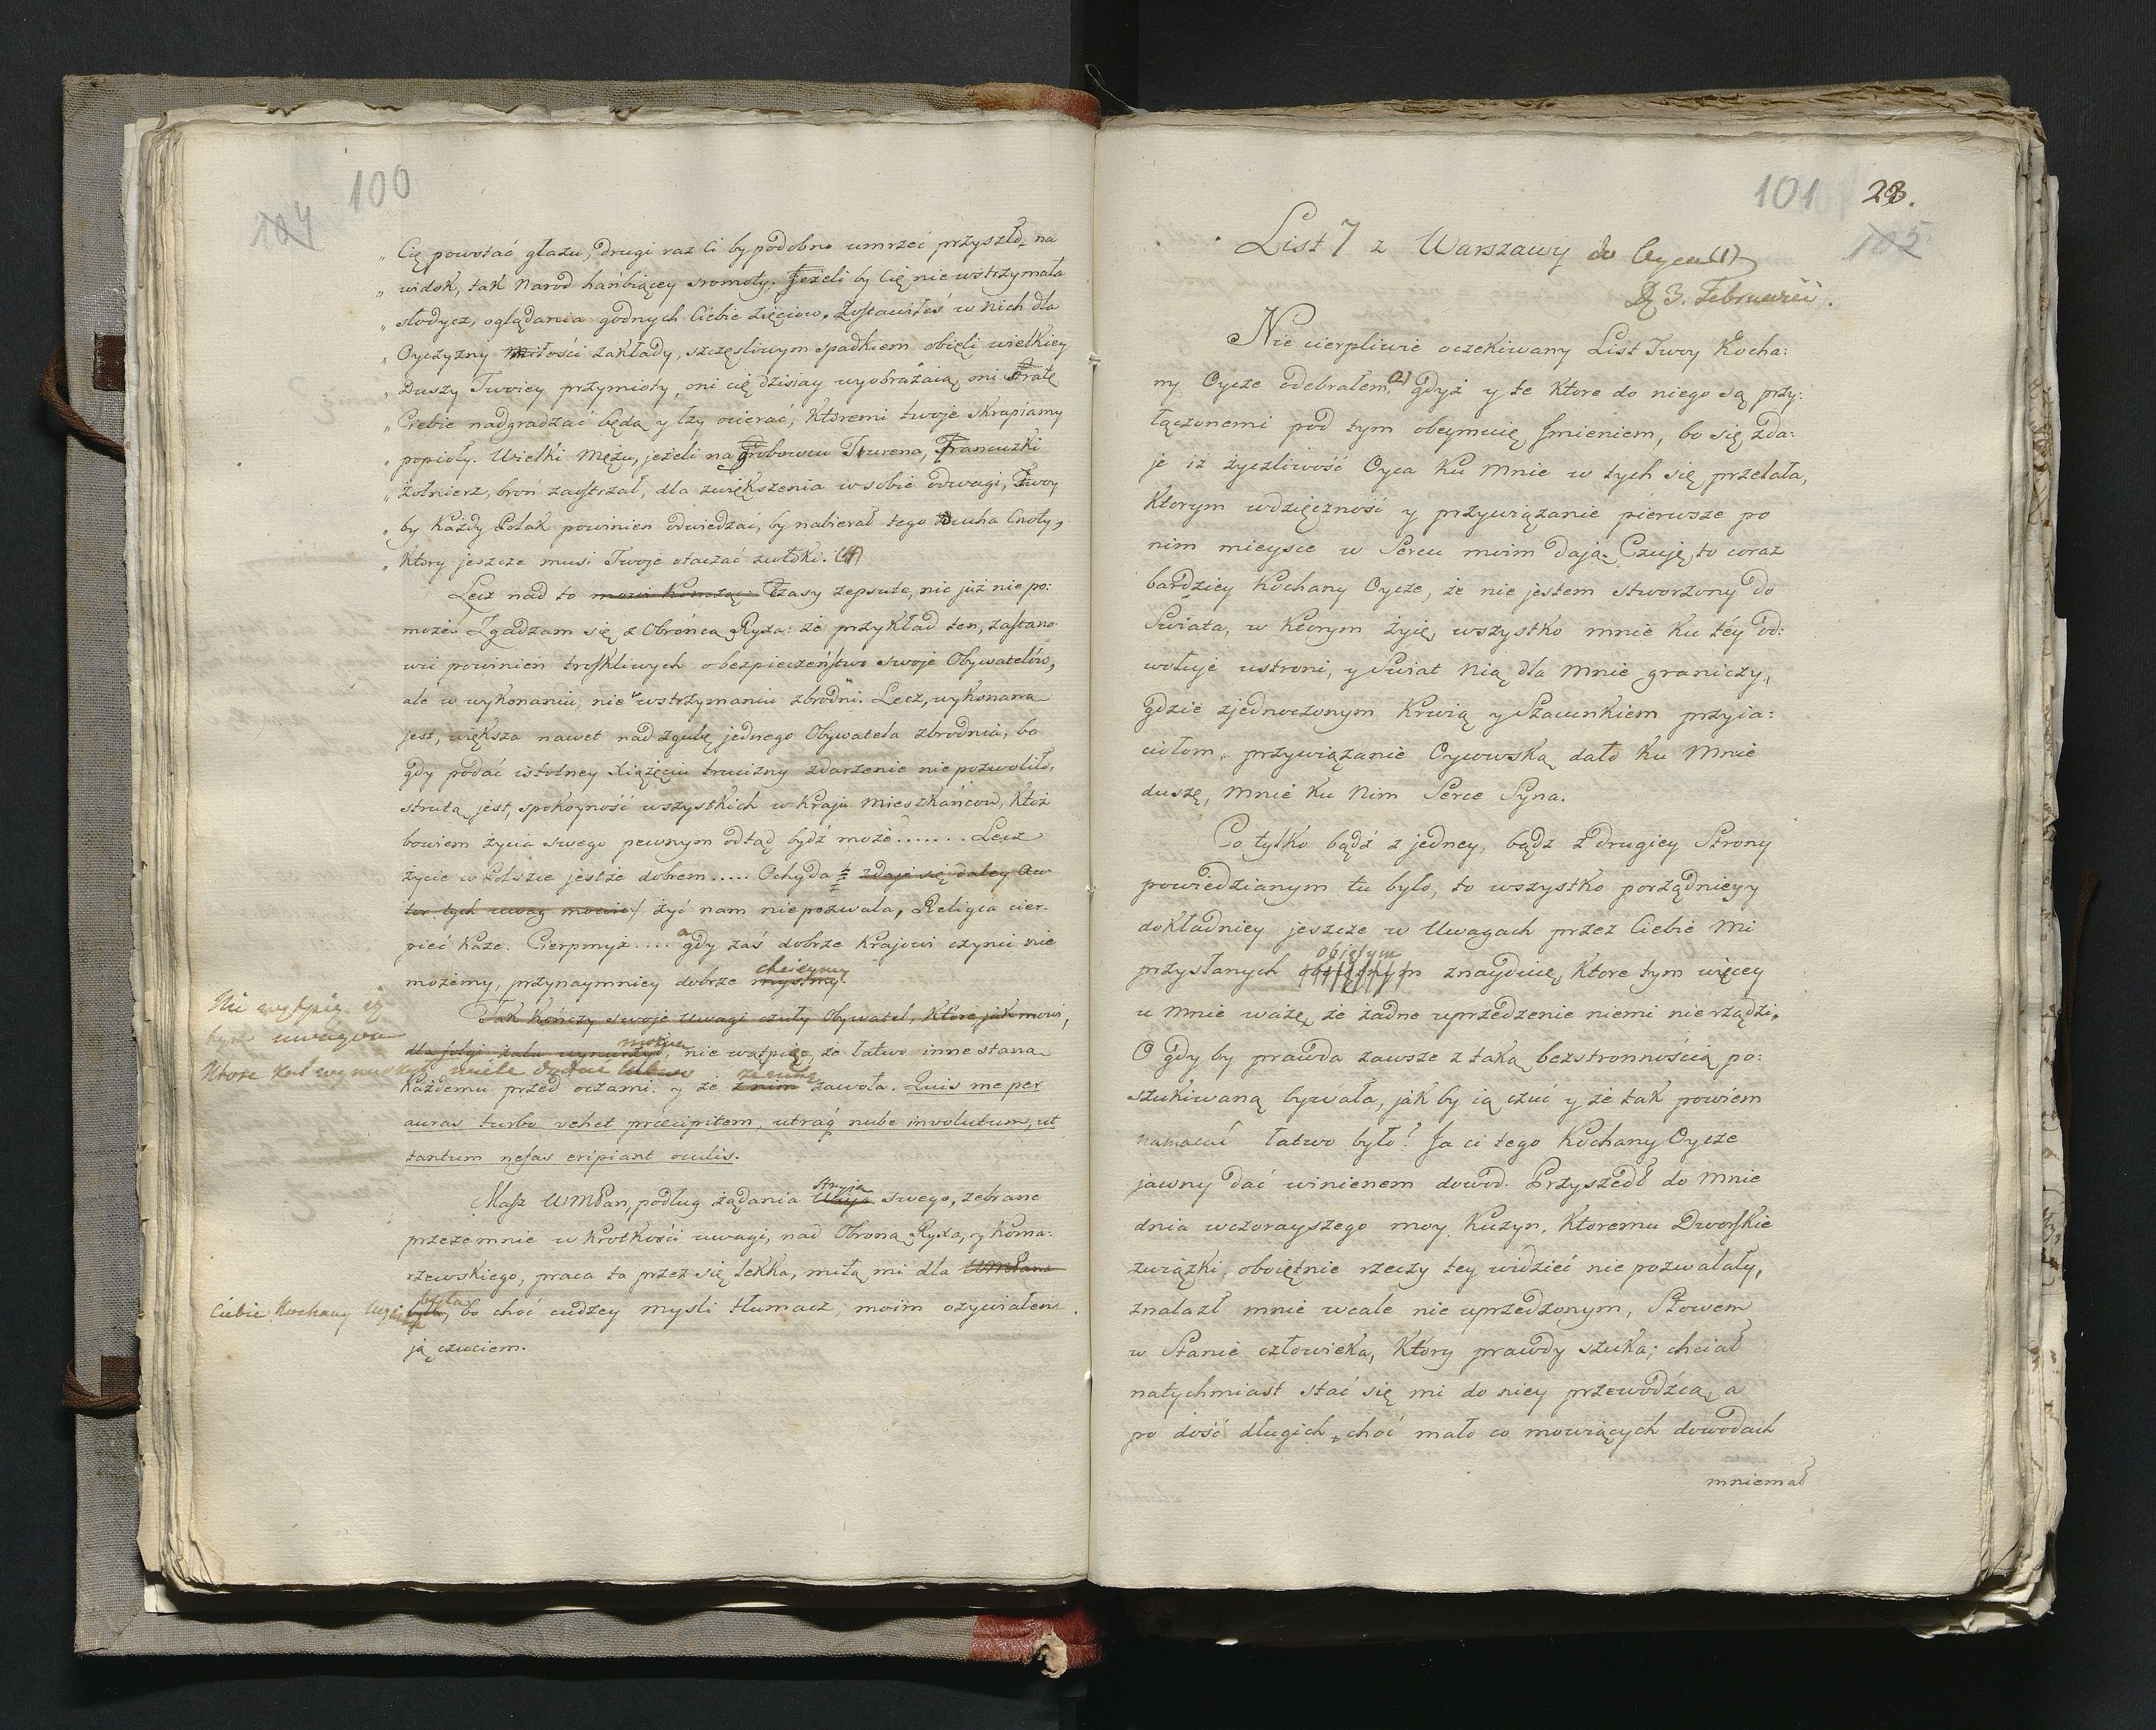 100
104
„ Cię powstać głazu, drugi raz Ci by podobno umrzeć przyszło, na
„ widok, tak Narod hańbiącey sromoty. Jeżeli by Cię nie wstrzymała
„ słodycz, oglądania godnych Ciebie zięciow. Zostawiłeś w nich dla
„ Oyczyzny miłości zakłady, szczęsliwym spadkiem obięli wielkiey
„ Duszy Twoiey przymioty, oni cię dzisiay wyobrażaią, oni stratę
„ Ciebie nadgradzać będą y łzy ocierać, któremi twoje skrapiamy
„ popioły. Wielki Mężu, jeżeli na grobowcu Turena, Francuzki
„ żołnierz, broń zaostrzał, dla zwiększenia w sobie odwagi, Twoy
„ by każdy Polak powinien odwiedzać, by nabierał tego ducha Cnoty,
„ ktory jeszcze musi Twoje otaczać zwłoki.
Lecz nad to Czasy zepsute, nic już nie po:
może. Zgadzam się z Obrońcą Ryxa: że przykład ten, zastano
wić powinien troskliwych o bezpieczeństwo swoje Obywatelów,
ale w wykonaniu, nie wstrzymaniu zbrodni. Lecz, wykonana
jest, większa nawet nad zgubę jednego Obywatela zbrodnia, bo
gdy podać istotney Xiążęciu trucizny zdarzenie nie pozwoliło,
struta jest, spokoyność wszystkich w Kraju Mieszkańcow, ktoż
bowiem życia swego pewnym odtąd bydź może? ...... Lecz
życie w Polszcze jestże dobrem ..... Ochyda zdaje się daley Aw
tor tych uwag mowić żyć nam niepozwala, Religia cier-
pieć każe. Cierpmyż .... a gdy zaś dobrze Krajowi czynić nie
możemy, przynaymniey dobrze myslmy. chcieymy
Tak kończy swoje uwagi czuły Obywatel, które jak mowi,
dla folgi żalu wynurzył, nie wątpię, że łatwo inne staną
Każdemu przed oczami. y że z nim zawoła. Quis me per
auras turbo vehet præcipitem, utraq nube involutum, ut
tantum nefas eripiant oculis.
Masz WMPan, podług żądania Wuja stryja swego, zebrane
przezemnie w krotkości uwagi, nad Obroną Ryxa, y Koma:
rzewskiego, praca ta przez się lekka, miłą mi dla WMPana
Ciebie Kochany była, bo choć cudzey mysli tłumacz, moim ożywiałem
ją czuciem.
101
28.
105
List 7 z Warszawy do Oyca (1)
D. 3. Februarii.
Nie cierpliwie oczekiwany List Twoy Kocha:
ny Oycze odebrałem, (2) gdyż y te ktore do niego są przy:
łączonemi pod tym obeymuię Jmieniem, bo się zda:
je iż życzliwość Oyca ku mnie w tych się przelała,
ktorym wdzięczność y przywiązanie pierwsze po
nim mieysce w Sercu moim dają. Czuję, to coraz
bardziey Kochany Oycze, że nie jestem stworzony do
Swiata, w ktorym żyię, wszystko mnie ku téy od:
wołuje ustroni, y Swiat Nią dla mnie graniczy,
gdzie zjednoczonym Krwią y Szacunkiem przyia:
ciołom, przywiązanie Oycowską dało ku Mnie
duszę, mnie ku Nim Serce Syna.
Co tylko bądź z jedney, bądz z drugiey Strony
powiedzianym tu było, to wszystko porządniey y
dokładniey jeszcze w Uwagach przez Ciebie mi
przysłanych obiętym znayduię, ktore tym więcey
u mnie ważę, że żadne uprzedzenie niemi nierządzi.
O gdy by prawda zawsze z taką bezstronnością po:
szukiwaną bywała, jak by ią czuć y że tak powiem
namacać łatwo było! Ja ci tego Kochany Oycze
jawny dać winienem dowod. Przyszedł do mnie
dnia wczorayszego moy Kuzyn, ktoremu Dworskie
związki, oboiętnie rzeczy tey widzieć nie pozwalały,
znalazł mnie wcale nie uprzedzonym, Słowem
w Stanie człowieka, ktory prawdy szuka; chciał
natychmiast stać się mi do niey przewodzcą, a
po dość długich, choć mało co mowiących dowodach
mniemał